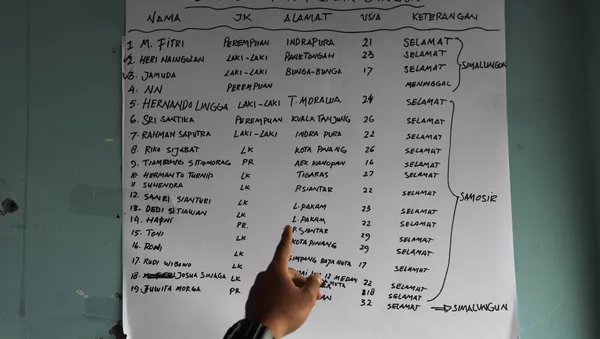 NAMA JK ALAMAT USIA KETERANGAN
1. M. FITRI PEREMPUAN INDRAPURA 21 SELAMAT
2. HERI NAINGOLAN LAKI-LAKI PANETONGAH 23 SELAMAT SIMALUNGUN
3. JAMUDA LAKI-LAKI BUNGA-BUNGA 17 SELAMAT
4. NN PEREMPUAN MENINGGAL
5. HERNANDO LINGGA LAKI-LAKI T. MORAWA 24 SELAMAT
6. SRI SANTIKA PEREMPUAN KUALA TANJUNG 26 SELAMAT
7. RAHMAN SAPUTRA LAKI-LAKI INDRA PURA 22 SELAMAT
8. RIKO SIJABAT LK KOTA PINANG 26 SELAMAT
9. PR AEK KANOPAN 16 SELAMAT
10. HERMANTO TURNIP LK TIGARAS 27 SELAMAT
11 SUHENDRA LK P.SIANTAR 22 SELAMAT SAMOSIR
12. SANRI SIANTURI LK L. PAKAM 23 SELAMAT
13. DEDI SETIAWAN LK L. PAKAM 22 SELAMAT
14. HAFNI PR. P. SIANTAR 29 SELAMAT
15. TONI LK KOTA PINANG 29 SELAMAT
16. RONI LK
17. RUDI WIBOWO LK SIMPANG RAJA 17 SELAMAT
18. JOSUA SINAGA LK 12 MEDAN 22 SELAMAT
19. JUWITA MORGA PR 32 SELAMAT SIMALUNGUN